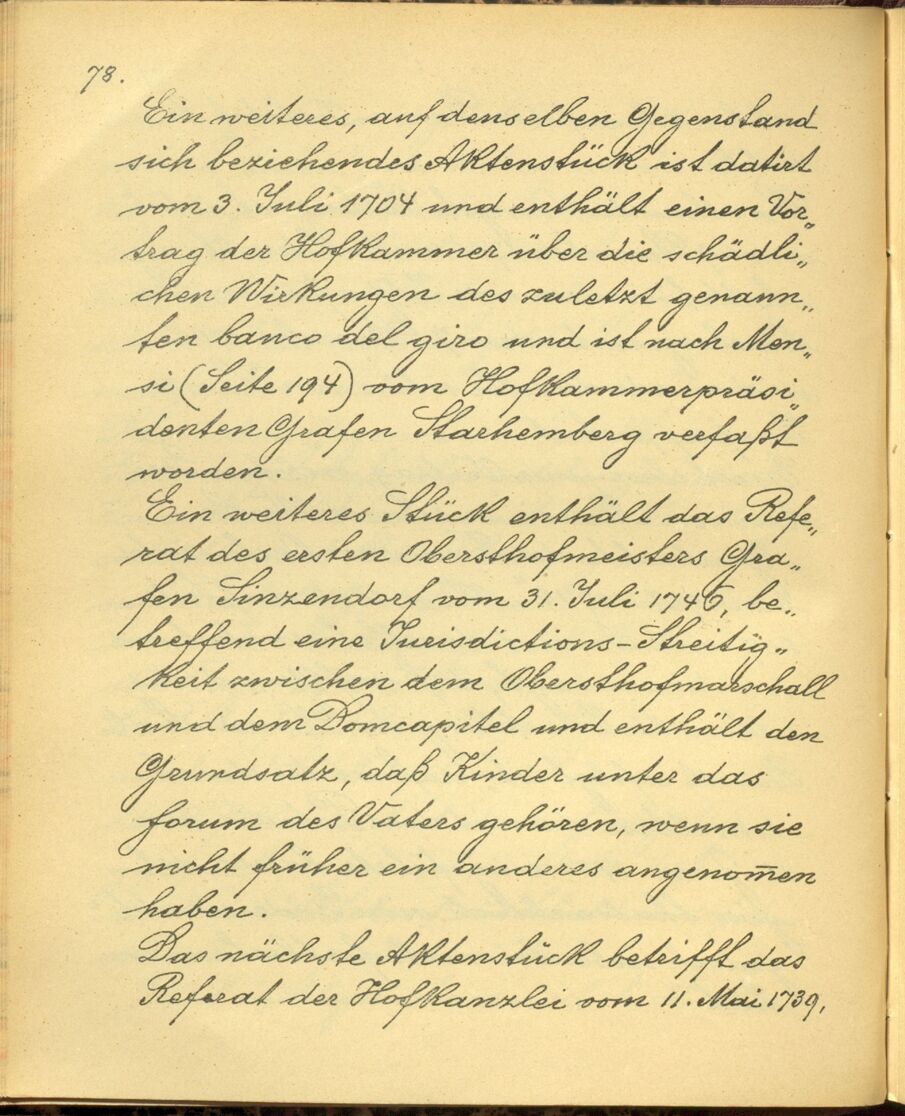 78.
Ein weiteres, auf denselben Gegenstand
sich beziehendes Aktenstück ist datirt
vom 3. Juli 1704 und enthält einen Vor„
trag der Hofkammer über die schädli„
chen Wirkungen des zuletzt genann„
ten banco del giro und ist nach Men„
si (Seite 194) vom Hofkammerpräsi„
denten Grafen Starhemberg verfaßt
worden.
Ein weiteres Stück enthält das Refe„
rat des ersten Obersthofmeisters Gra„
fen Sinzendorf vom 31. Juli 1746, be„
treffend eine Jurisdictions-Streitig„
keit zwischen dem Obersthofmarschall
und dem Domcapitel und enthält den
Grundsatz, daß Kinder unter das
forum des Vaters gehören, wenn sie
nicht früher ein anderes angenom̄en
haben.
Das nächste Aktenstück betrifft das
Referat der Hofkanzlei vom 11. Mai 1739,